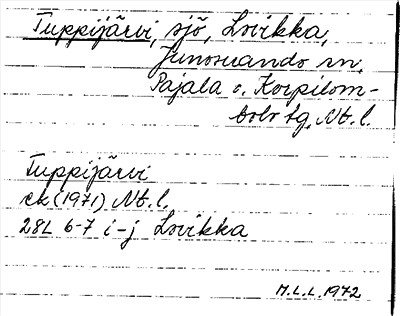 Tuppijärvi, sjö, Lovikka,
Junosuando sn,
Pajala o. Korpilom-
bolo tg, Nb. l.
Tuppijärvi
ek (1971) Nb. l.
28L 6-7 i-j Lovikka
M.L.L. 1972